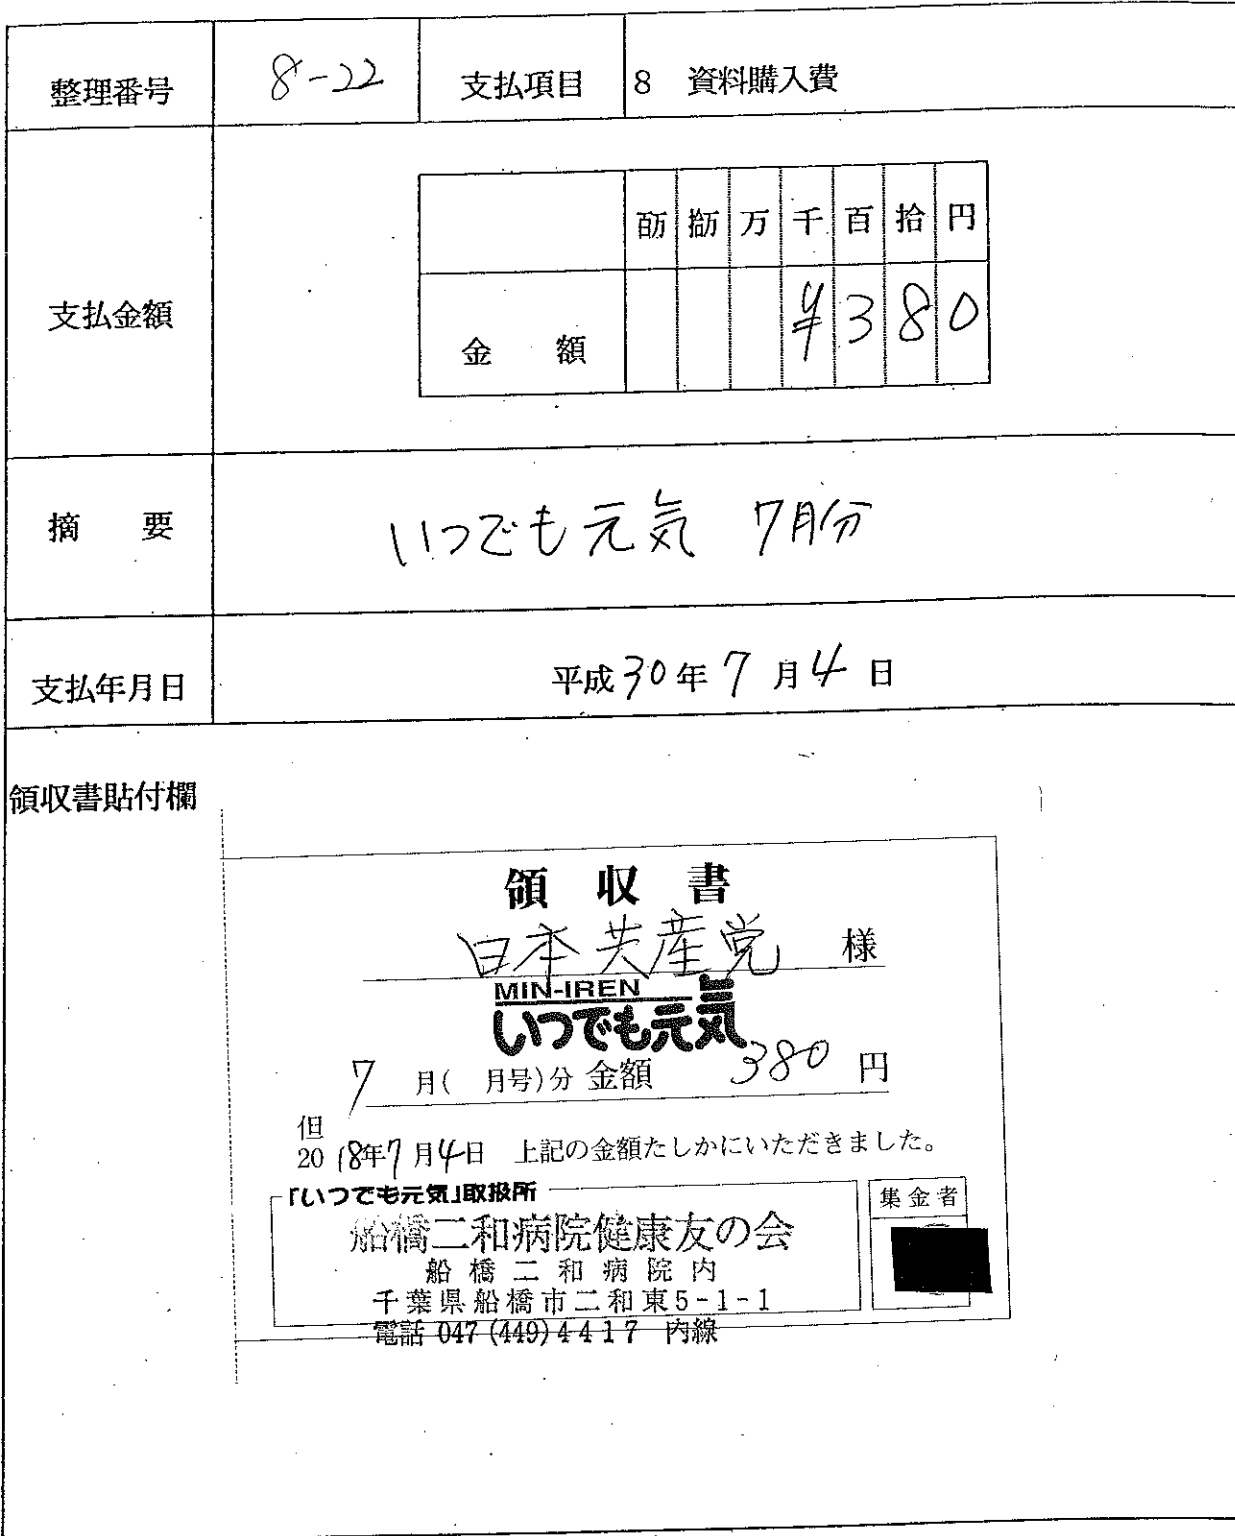 整理番号 8-22 支払項目 8 資料購入費
百万 拾万 万 千 百 拾 円
支払金額
金 額 ¥380
摘 要 いつでも元気 7月分
支払年月日 平成30年7月4日
領収書貼付欄
領 収 書
日本共産党 様
MIN-IREN
いつでも元気
7月( 月号)分 金額 380 円
但
2018年7月4日 上記の金額たしかにいただきました。
「いつでも元気」取扱所 集金者
船橋二和病院健康友の会
船橋二和病院内
千葉県船橋市二和東5-1-1
電話 047(449)4417 内線